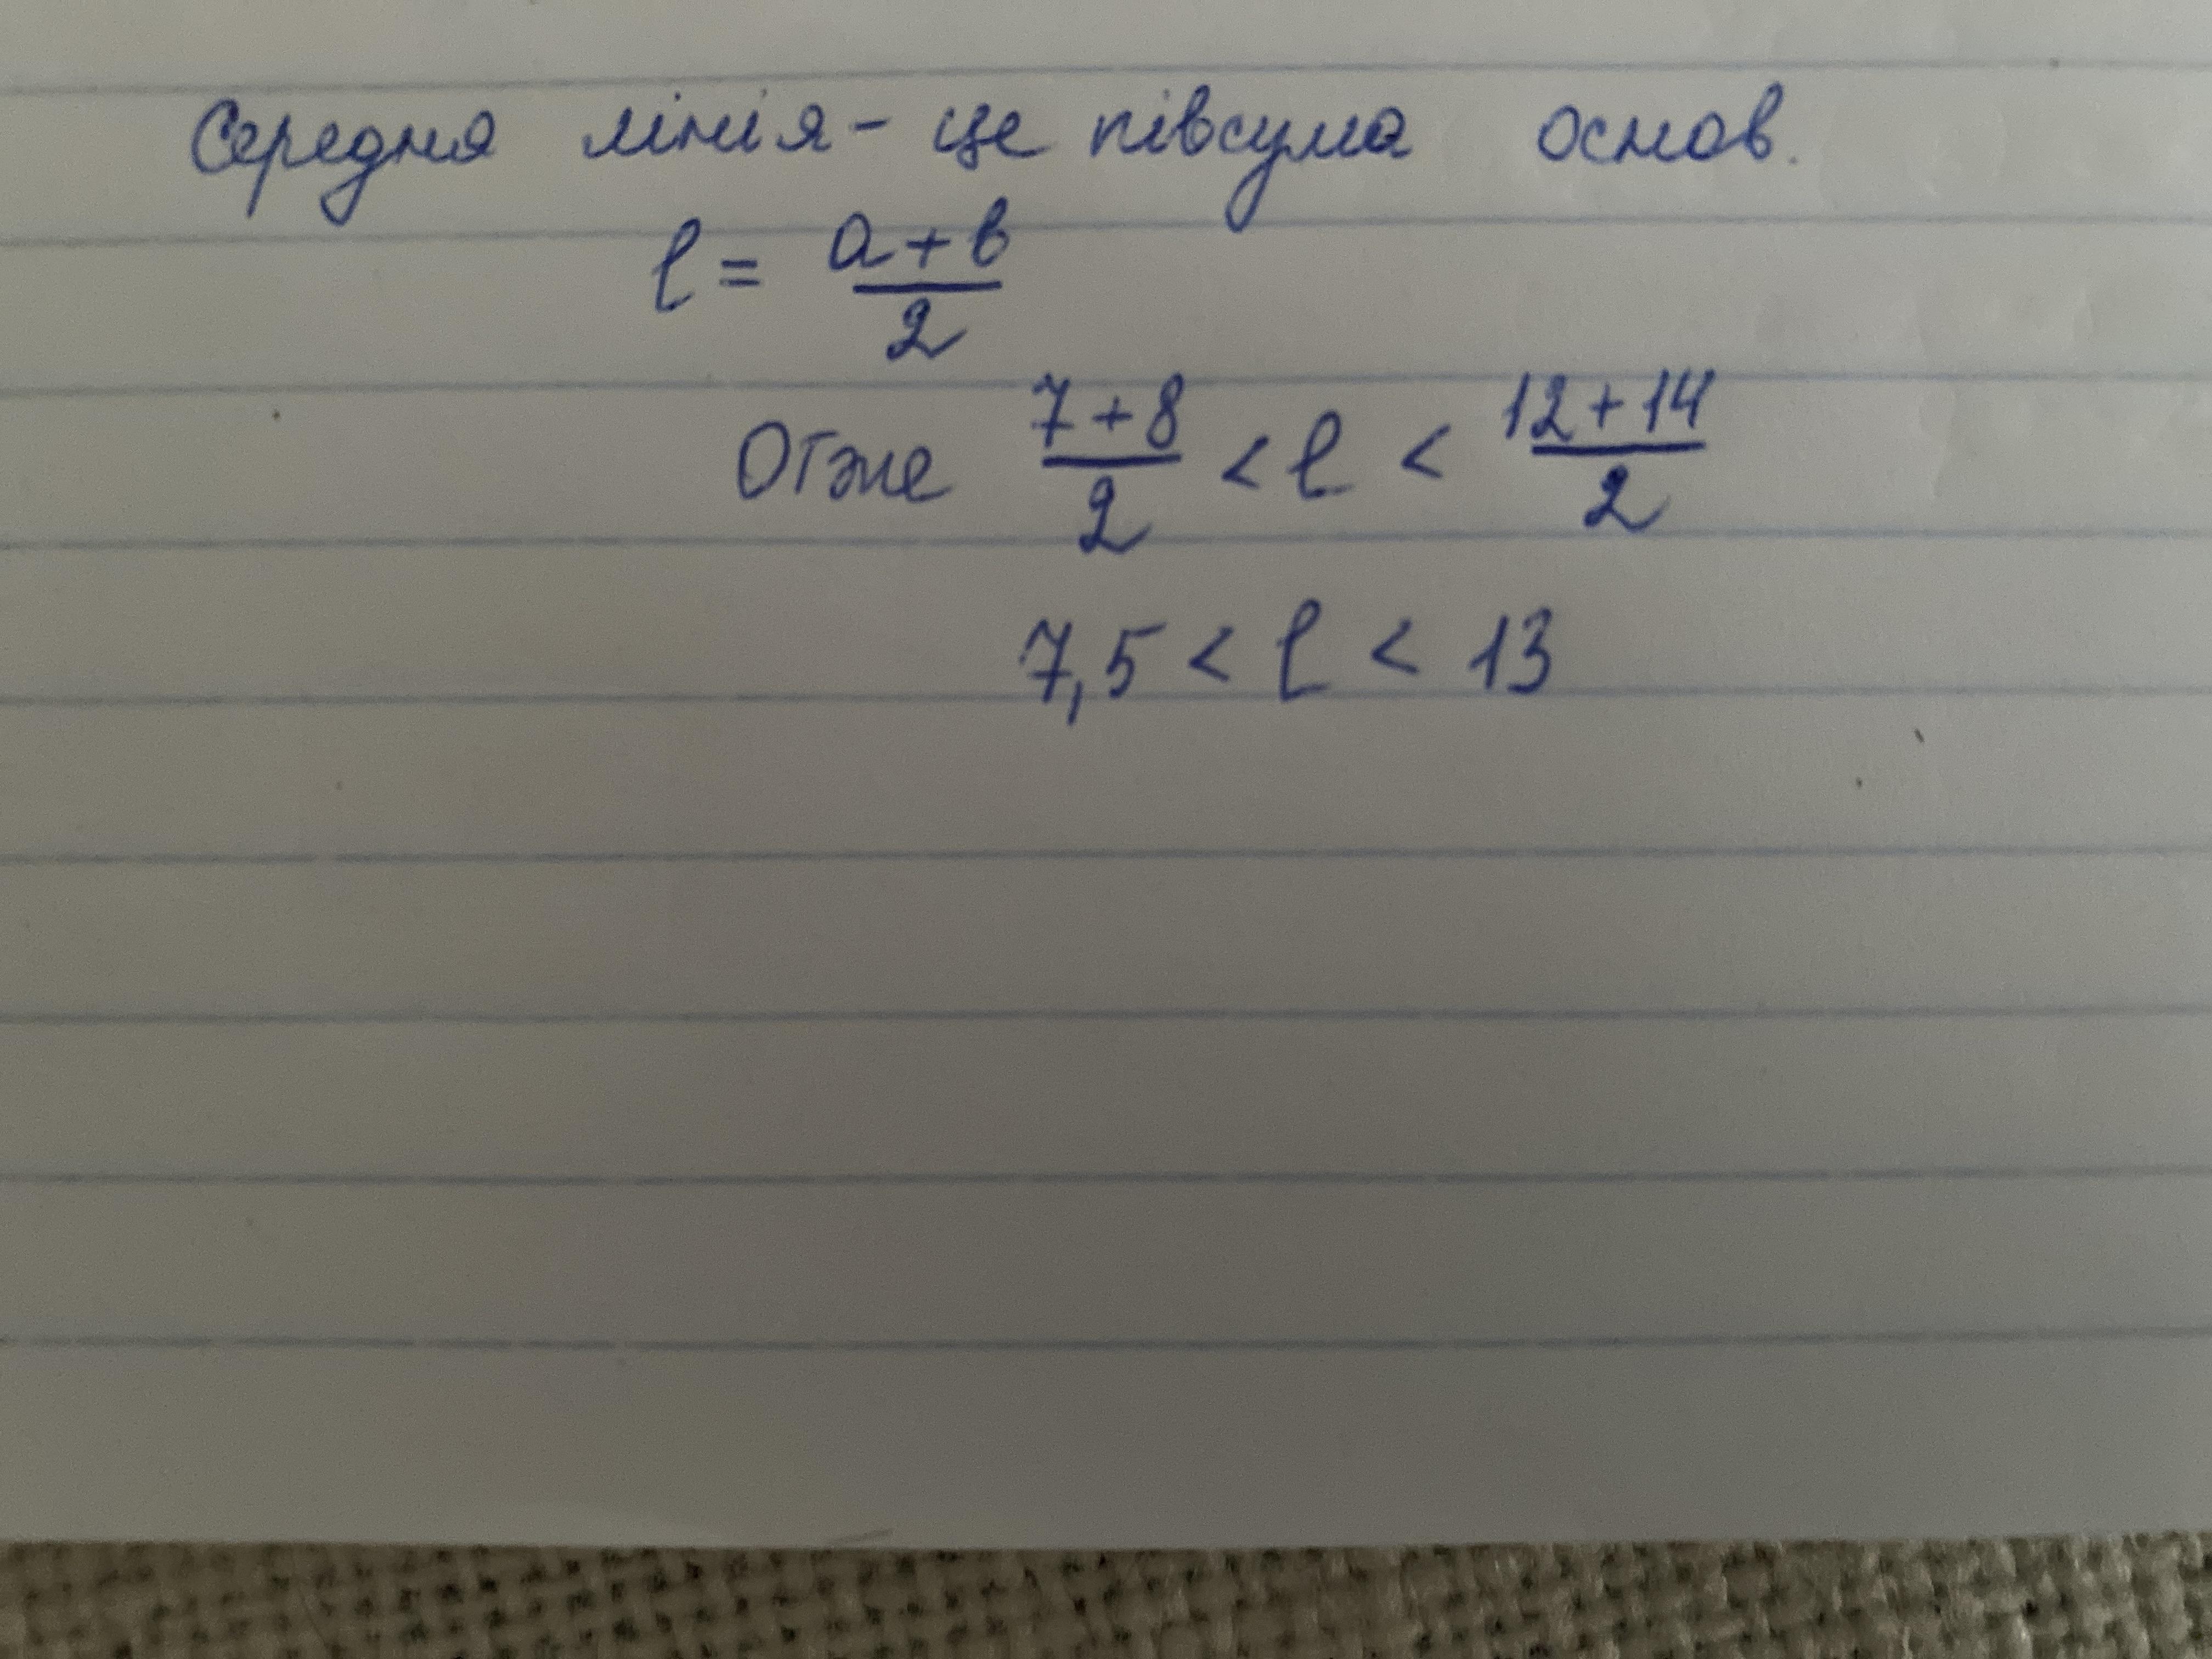 Середня лінія - це півсума основ.
l = a + b / 2
Отже 7 + 8 / 2 < l < 12 + 14 / 2
7,5 < l < 13